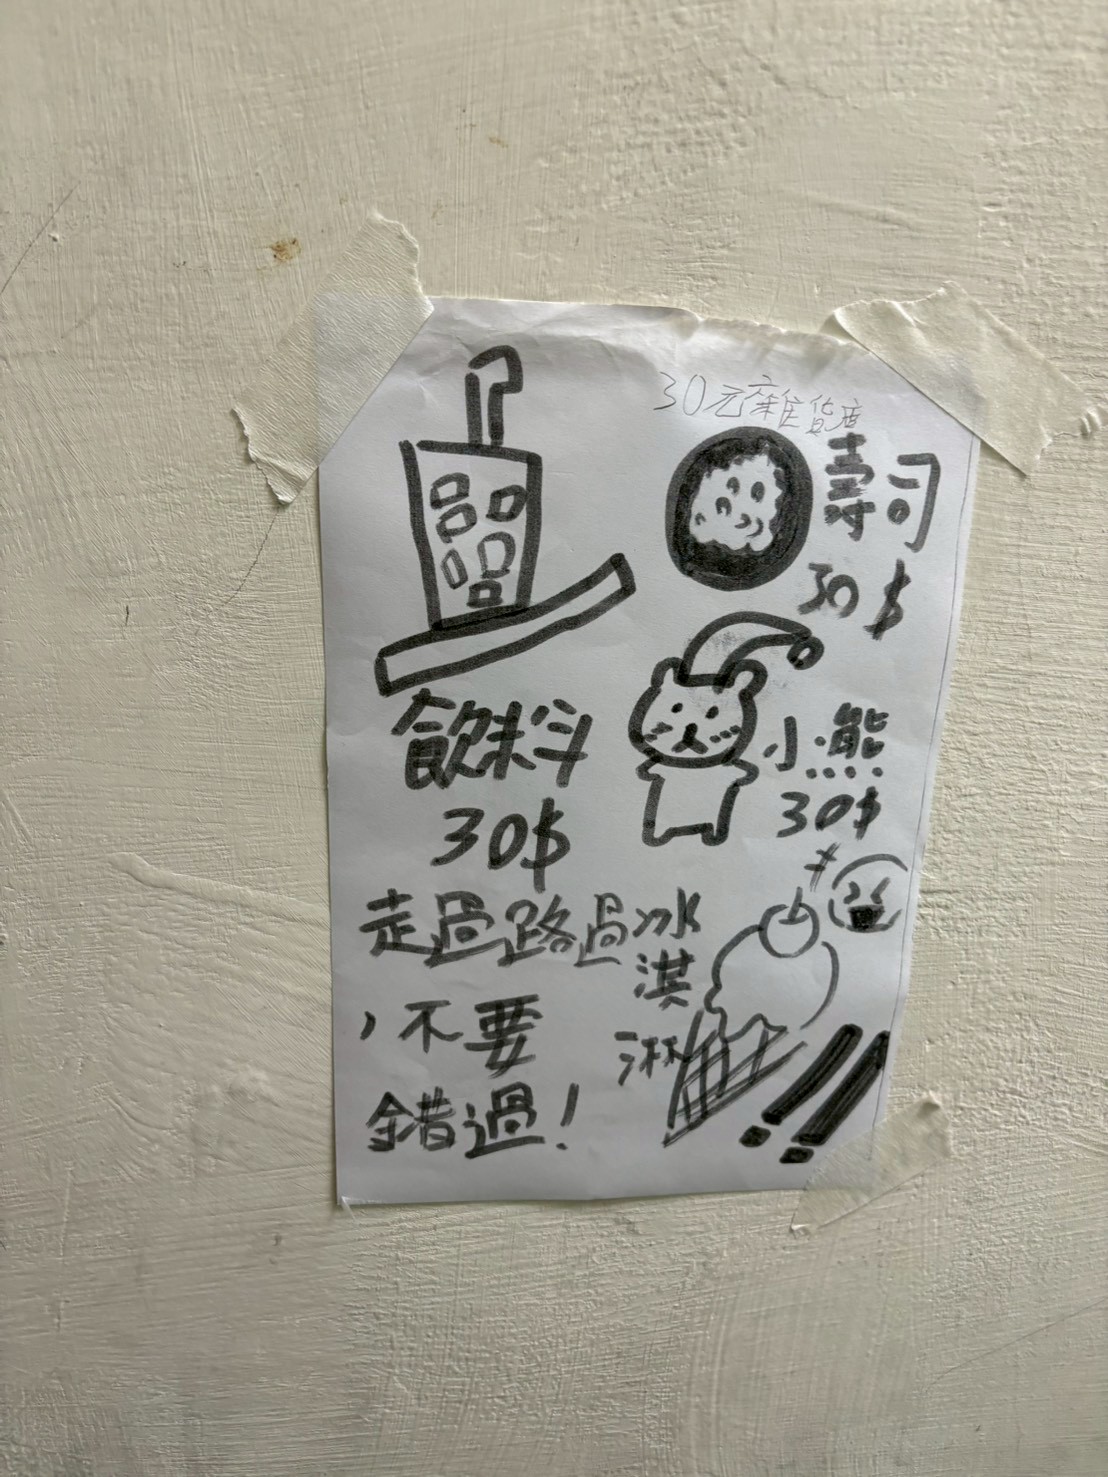 30元雜貨店
壽司
30$
飲料
30$
小熊
30$
走過路過
，不要
錯過！
冰
淇
淋
!!